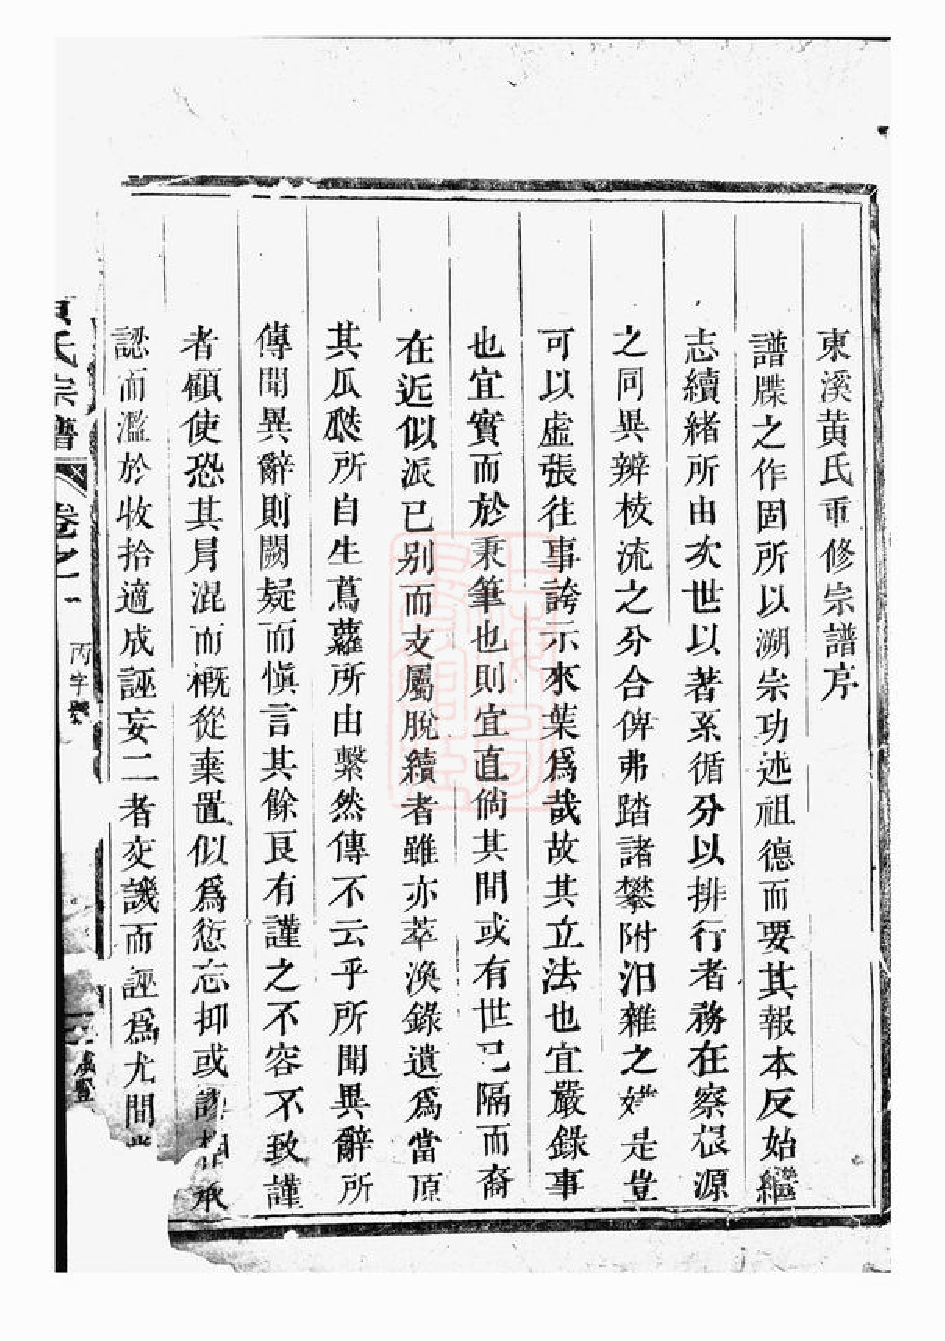 東溪黄氏重修宗譜序
譜牒之作固所以溯宗功述祖德而要其報本反始繼
志續緒所由次世以著系循分以排行者務在察根源
之同異辨枝流之分合俾弗踏諸攀附汨雜之嫌是豈
可以虛張往事誇示來葉爲哉故其立法也宜嚴錄事
也宜實而於秉筆也則宜直倘其間或有世已隔而裔
在近似派已别而支屬脫續者雖亦萃渙錄遺爲當頂
其瓜瓞所自生蔦蘿所由繫然傳不云乎所聞異辭所
傳聞異辭則闕疑而愼言其餘良有謹之不容不致謹
者顧使恐其冐混而概從棄置似爲愆忘抑或承
認而濫於收拾適成誣妄二者交譏而誣爲尤間
氏宗譜
卷之一
丙字號